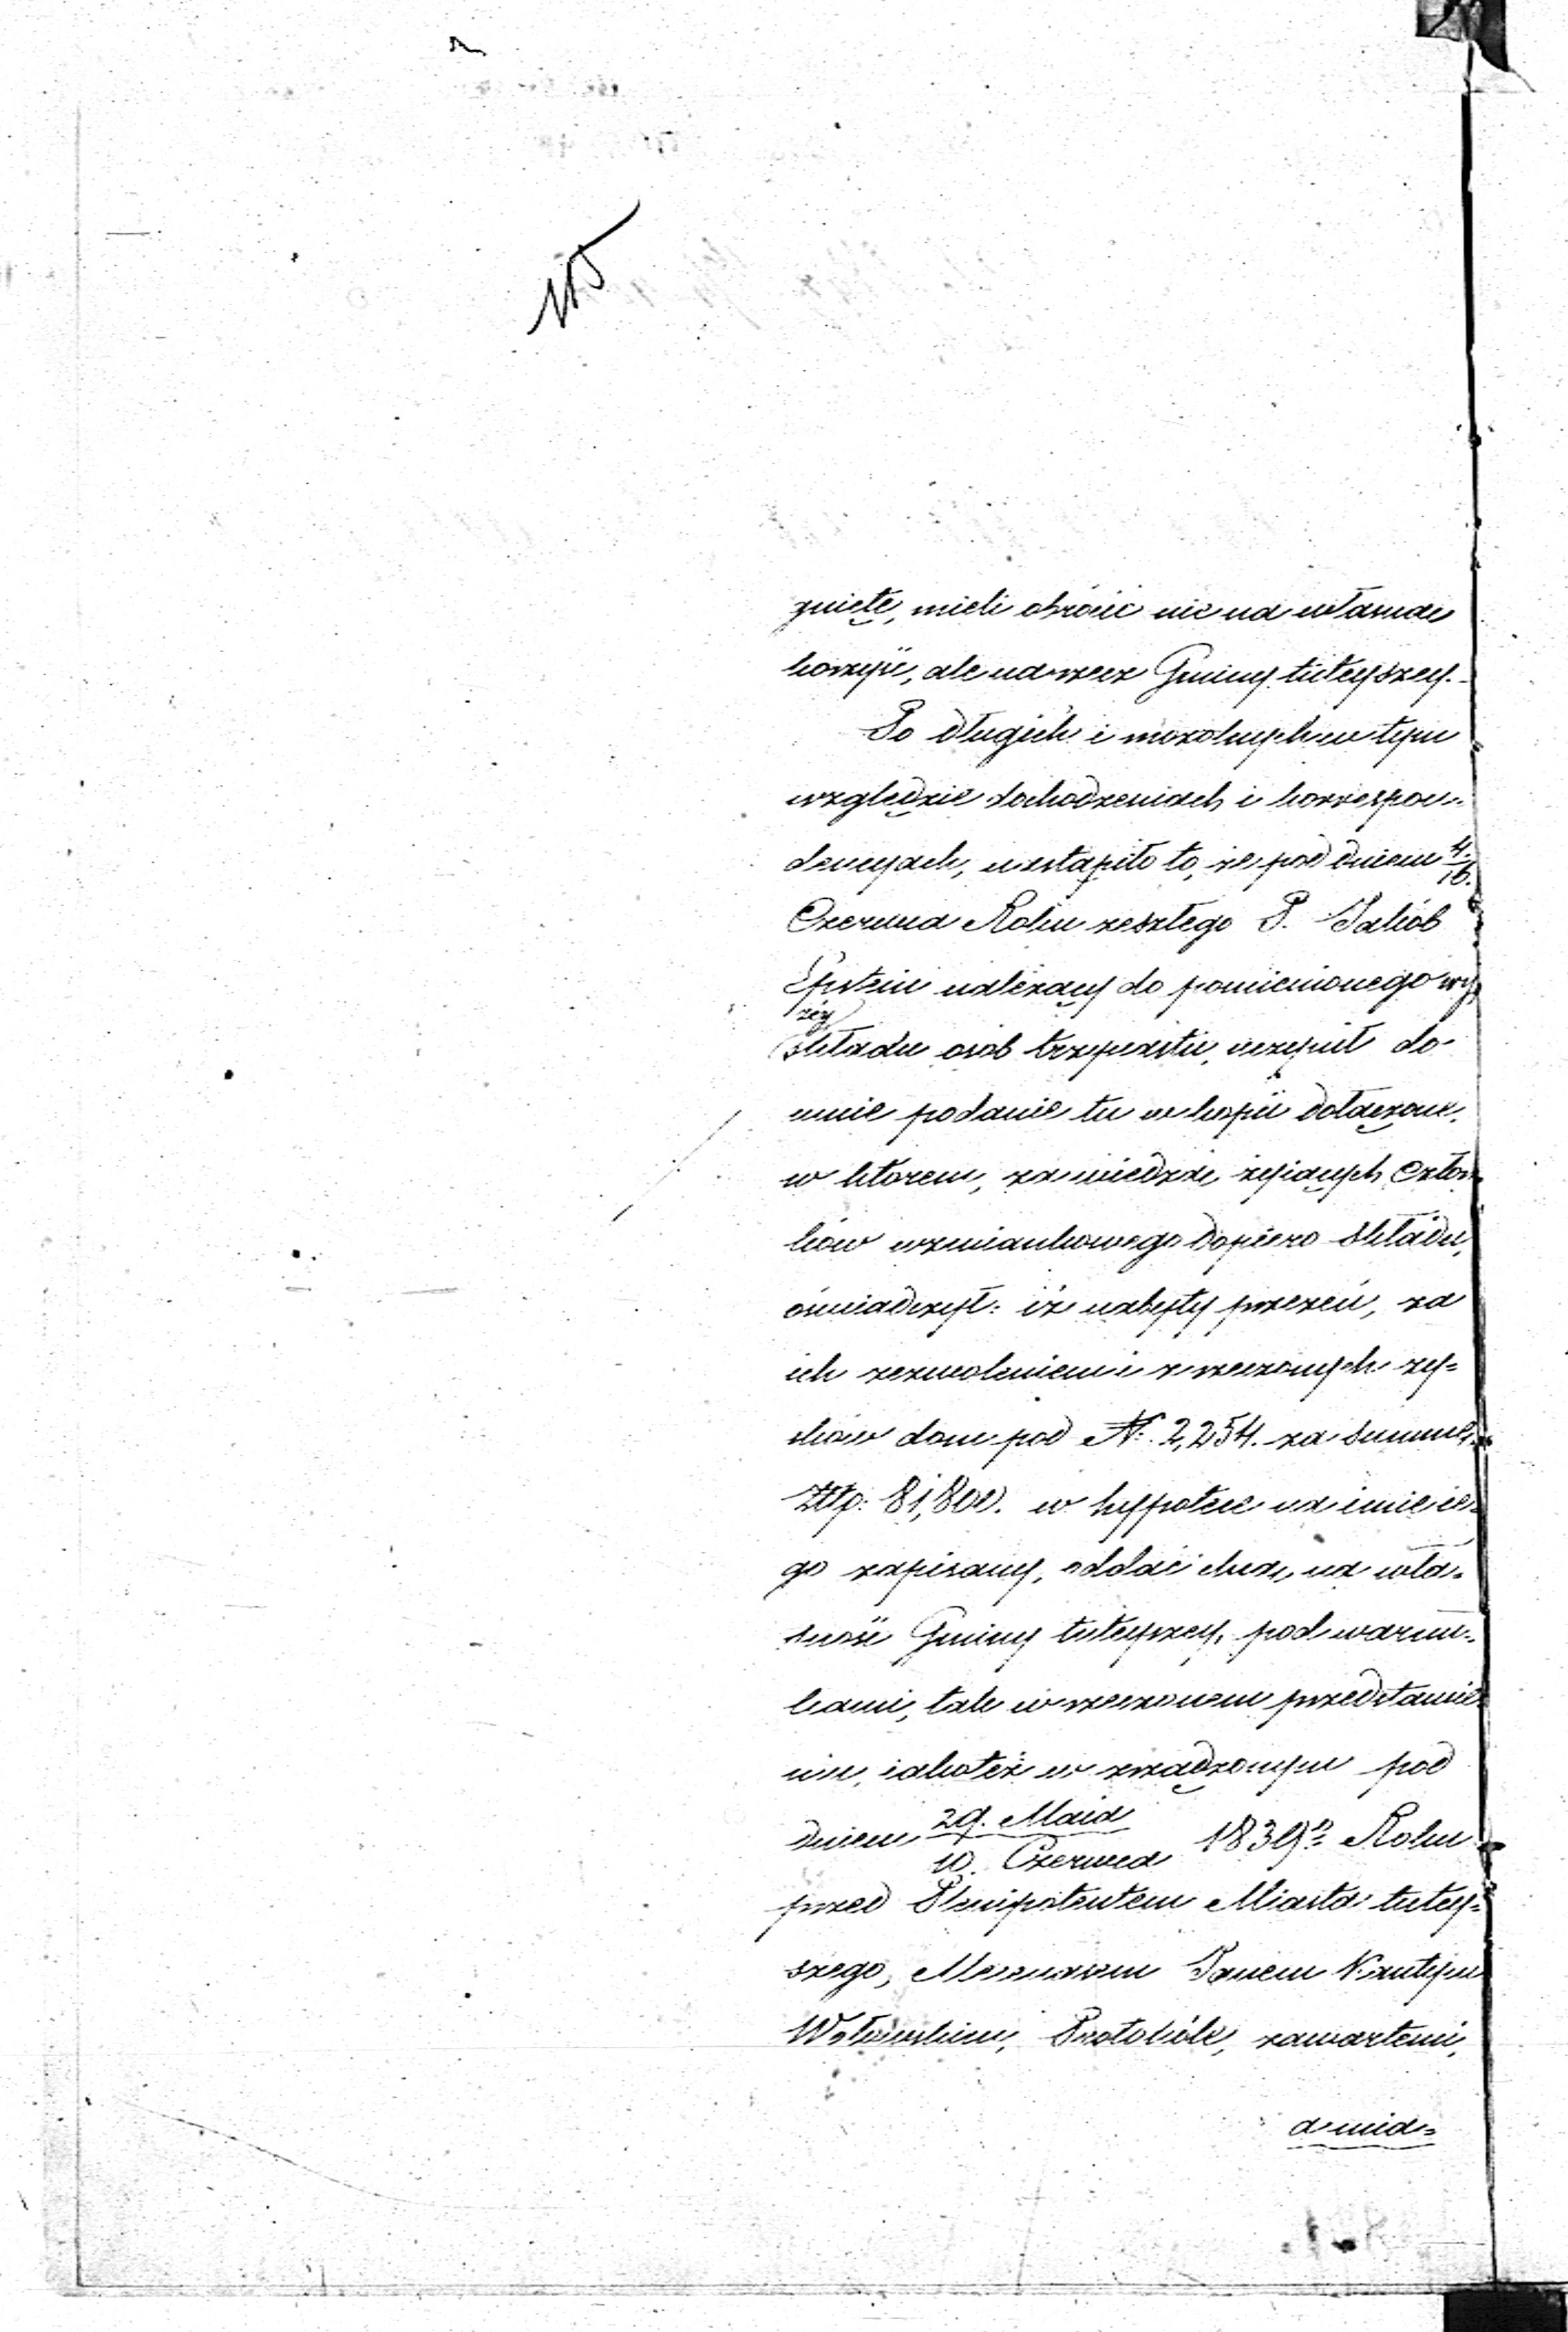 115
gnięte, mieli obrócić nie na własną
korzyść, ale na rzecz Gminy tuteyszey.
Po długich i mozolnych w tym
względzie dochodzeniach i korrespon-
dencyach, nastąpiło to, że pod dniem 4/16.
Czerwca Roku zeszłego P. Jakób
Epstein należący do pomienionego wy
żéy
składu osób trzynastu, uczynił do
mnie podanie tu w kopii dołączone,
w którem, za wiedzą żyjących Człon
ków wzmiankowego dopiero składu,
oświadczył: iż nabyty przezeń, za
ich zezwoleniem i z rzeczonych zy-
sków dom pod Nr. 2,254. za summę
Złtp: 81,800. w hypotece na imie ie-
go zapisany, oddać chcą, na wła-
sność Gminy tuteyszey, pod warun-
kami, tak w rzeczonem przedstawie
niu, iakoteż w zrządzonym pod
dniem 29. Maia / 10. Czerwca 1839. Roku
przed Plenipotentem Miasta tutey-
szego, Mecenasem Panem Kantym
Wołowskim, Protokóle, zawartemi,
a mia-